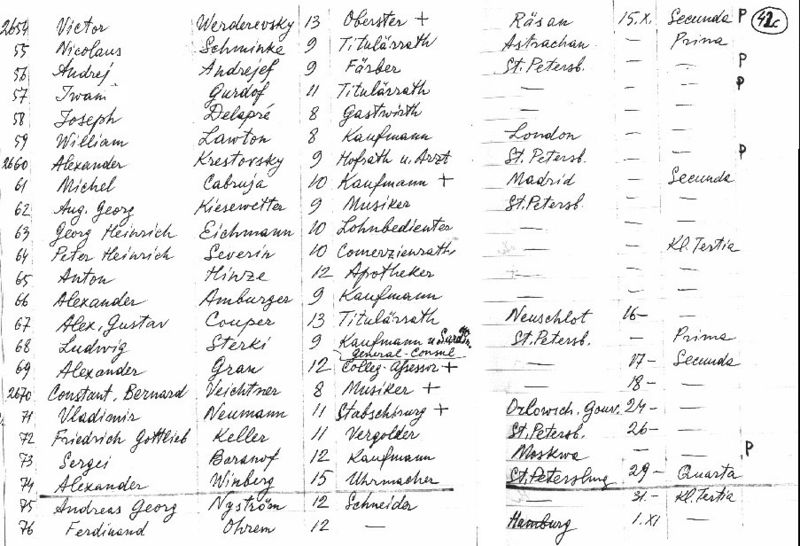 2654 Victor Werderevsky 13 Oberster + Räsan 15.X. Secunda P 42c
55 Nicolaus Schminke 9 Titulärrath Astrachan — Prima
56 Andrej Andrejef 9 Färber St. Petersb. — — P
57 Iwan Gurdof 11 Titulärrath — — — P
58 Joseph Delapré 8 Gastwirth — — —
59 William Lawton 8 Kaufmann London — —
2660 Alexander Krestovsky 9 Hofrath u. Arzt St. Petersb. — — P
61 Michel Cabruja 10 Kaufmann + Madrid — Secunda
62 Aug. Georg Kiesewetter 9 Musiker St. Petersb. — —
63 Georg Heinrich Eichmann 10 Lohnbedienter — — —
64 Peter Heinrich Severin 10 Comerzienrath — — Kl. Tertia
65 Anton Hinze 12 Apotheker — — —
66 Alexander Amburger 9 Kaufmann — — —
67 Alex. Gustav Couper 13 Titulärrath Neuschlot 16 — —
68 Ludwig Sterki 9 Kaufmann u. St. Petersb. — Prima
general-Consul
69 Alexander Gran 12 Colleg. Assessor + — 17 — Secunda
2670 Constant. Bernard Veichtner 8 Musiker + — 18 — —
71 Vladimir Neumann 11 Stabschirurg + Orlowsch. Gouv. 24 — —
72 Friedrich Gottlieb Keller 11 Vergolder St. Petersb. 26 — —
73 Sergei Baranof 12 Kaufmann Moskwa — — P
74 Alexander Winberg 15 Uhrmacher St. Petersburg 29 — Quarta
75 Andreas Georg Nyström 12 Schneider — 31 — Kl. Tertia
76 Ferdinand Ohrem 12 — Hamburg 1. XI —